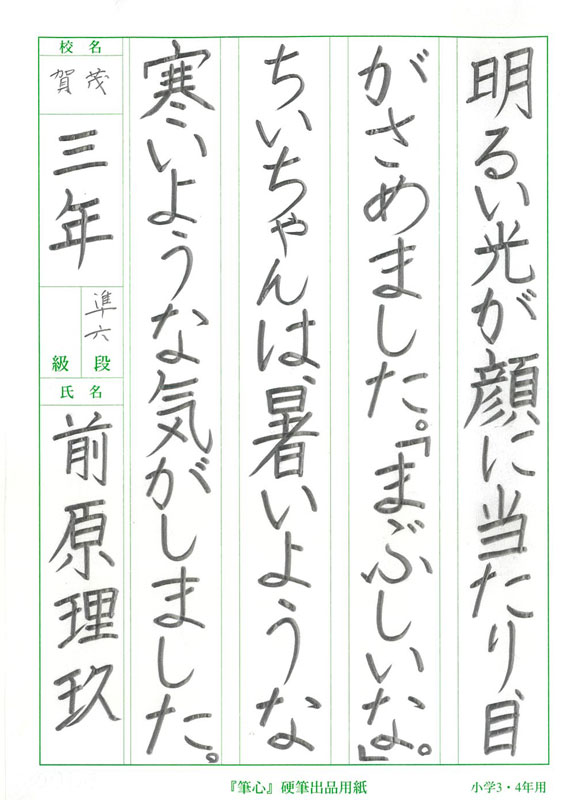 明るい光が顔に当たり、目
がさめました。「まぶしいな。」
ちいちゃんは、暑いような
寒いような気がしました。
校名
賀茂
三年
準六
級 段
氏名
前原理玖
『筆心』硬筆出品用紙
小学3・4年用